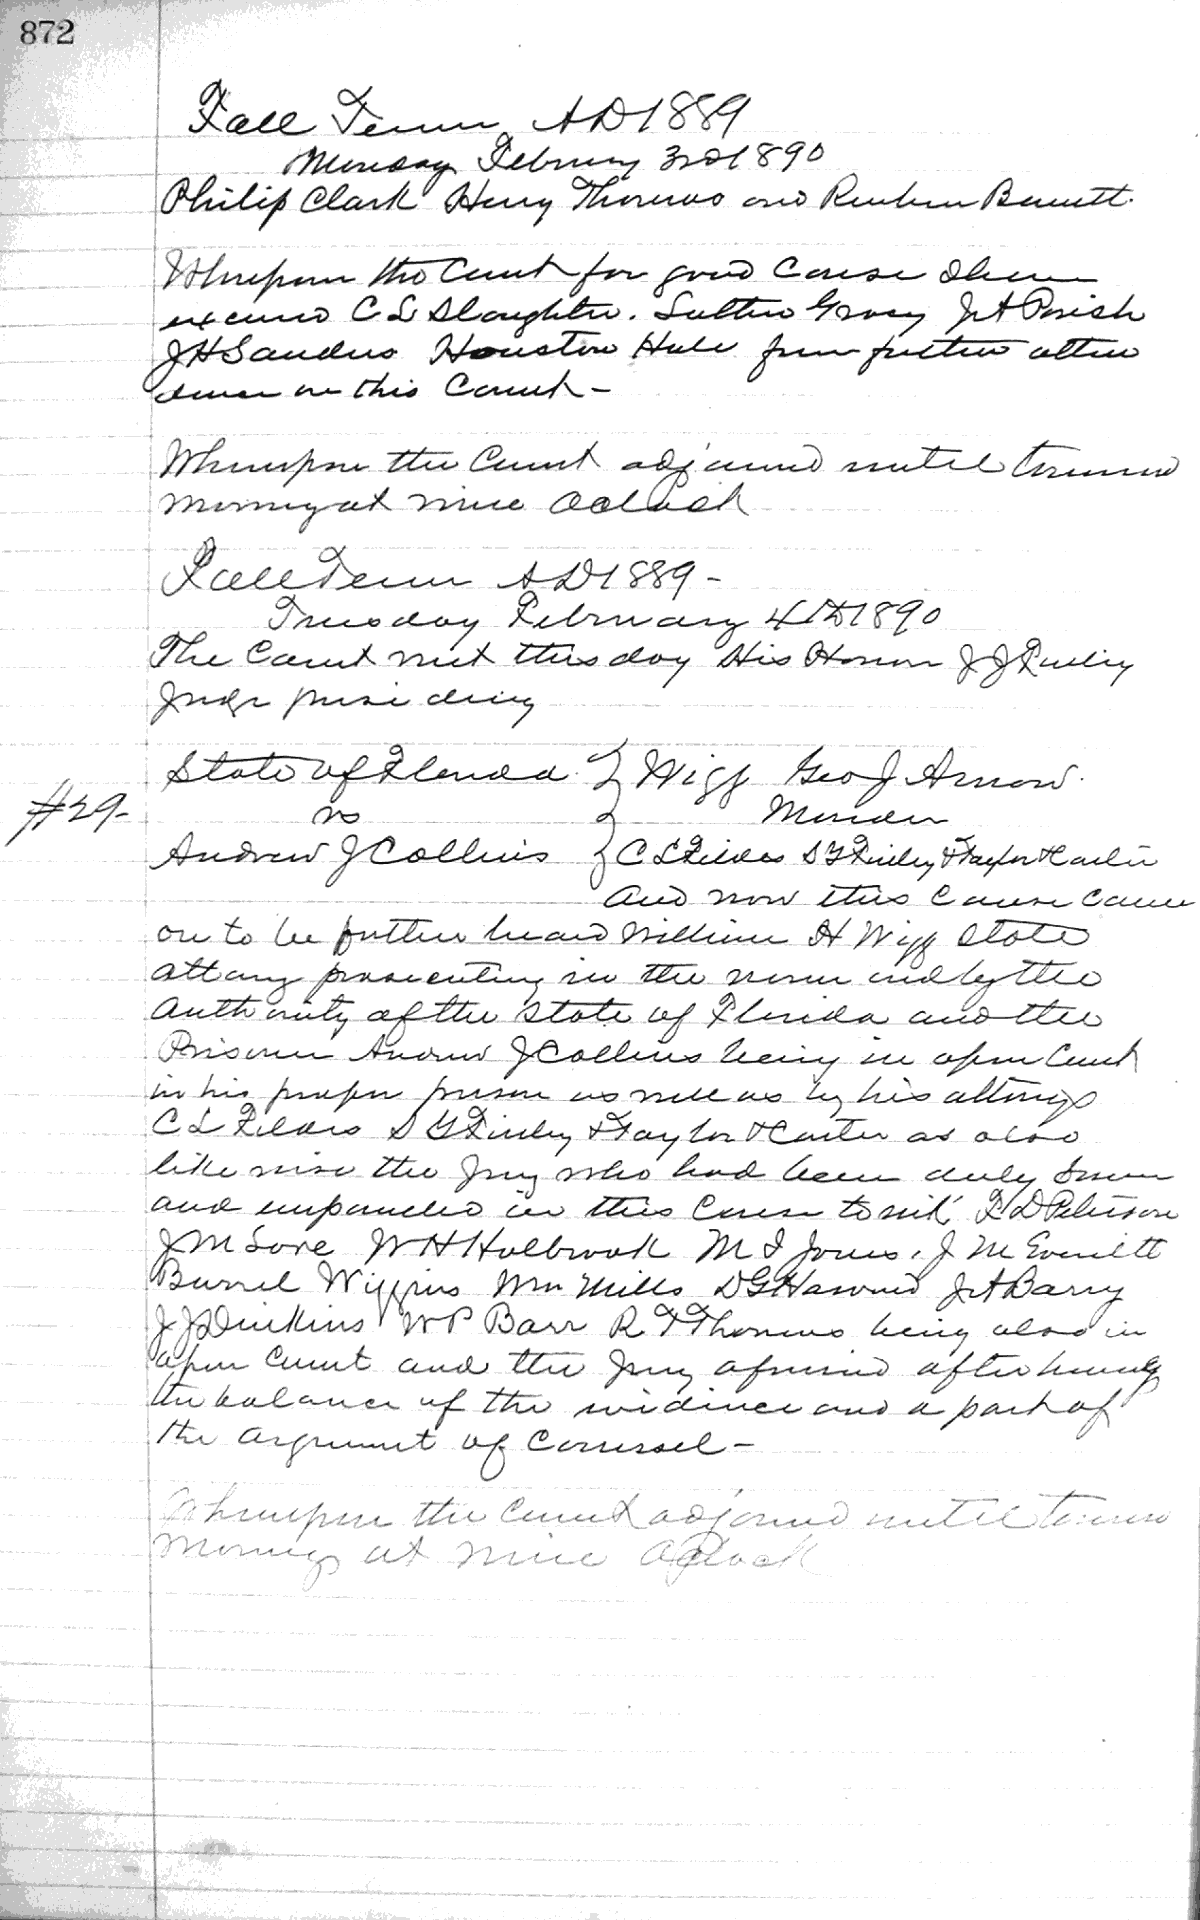 872
Fall Term AD 1889
Monday February 3rd 1890
Philip Clark Henry Thomas and Reuben Bennett.
Whereupon the Court for good Cause Shown
excused C L Slaughter. Luther Gracy J A Parish
J H Sanders Houston Hull from further atten
dance on this Court -
Whereupon the Court adjourned until tomorrow
Morning at nine Oclock
Fall Term AD 1889 -
Tuesday February 4th 1890
The Court met this day His Honor J J Finley
Judge presiding
State of Florida } Wigg Geo J Arnow.
#29- vs } Murder
Andrew J Collins } C L Fildes S Y Finley & Taylor & Carter
And now this Cause came
on to be further heard William H Wigg State
Attorny prosecuting in the name and by the
Authority of the State of Florida and the
Prisoner Andrew J Collins being in open Court
in his proper person as well as by his attorneys
C L Fildes S Y Finley & Taylor & Carter as also
like wise the Jury who had been duly Sworn
and empaneled in this Cause to wit' F D Peterson
J M Love W H Holbrook M I Jones. J M Everitt
Burrel Wiggins Wm Mills D G Haward J A Barry
J J Dinkins W P Barr R F Thomas being also in
open Court and the Jury after hearing
the balance of the evidence and a part of
the argument of Counsel -
Whereupon the Court adjourned until tomorrow
Morning at nine Oclock